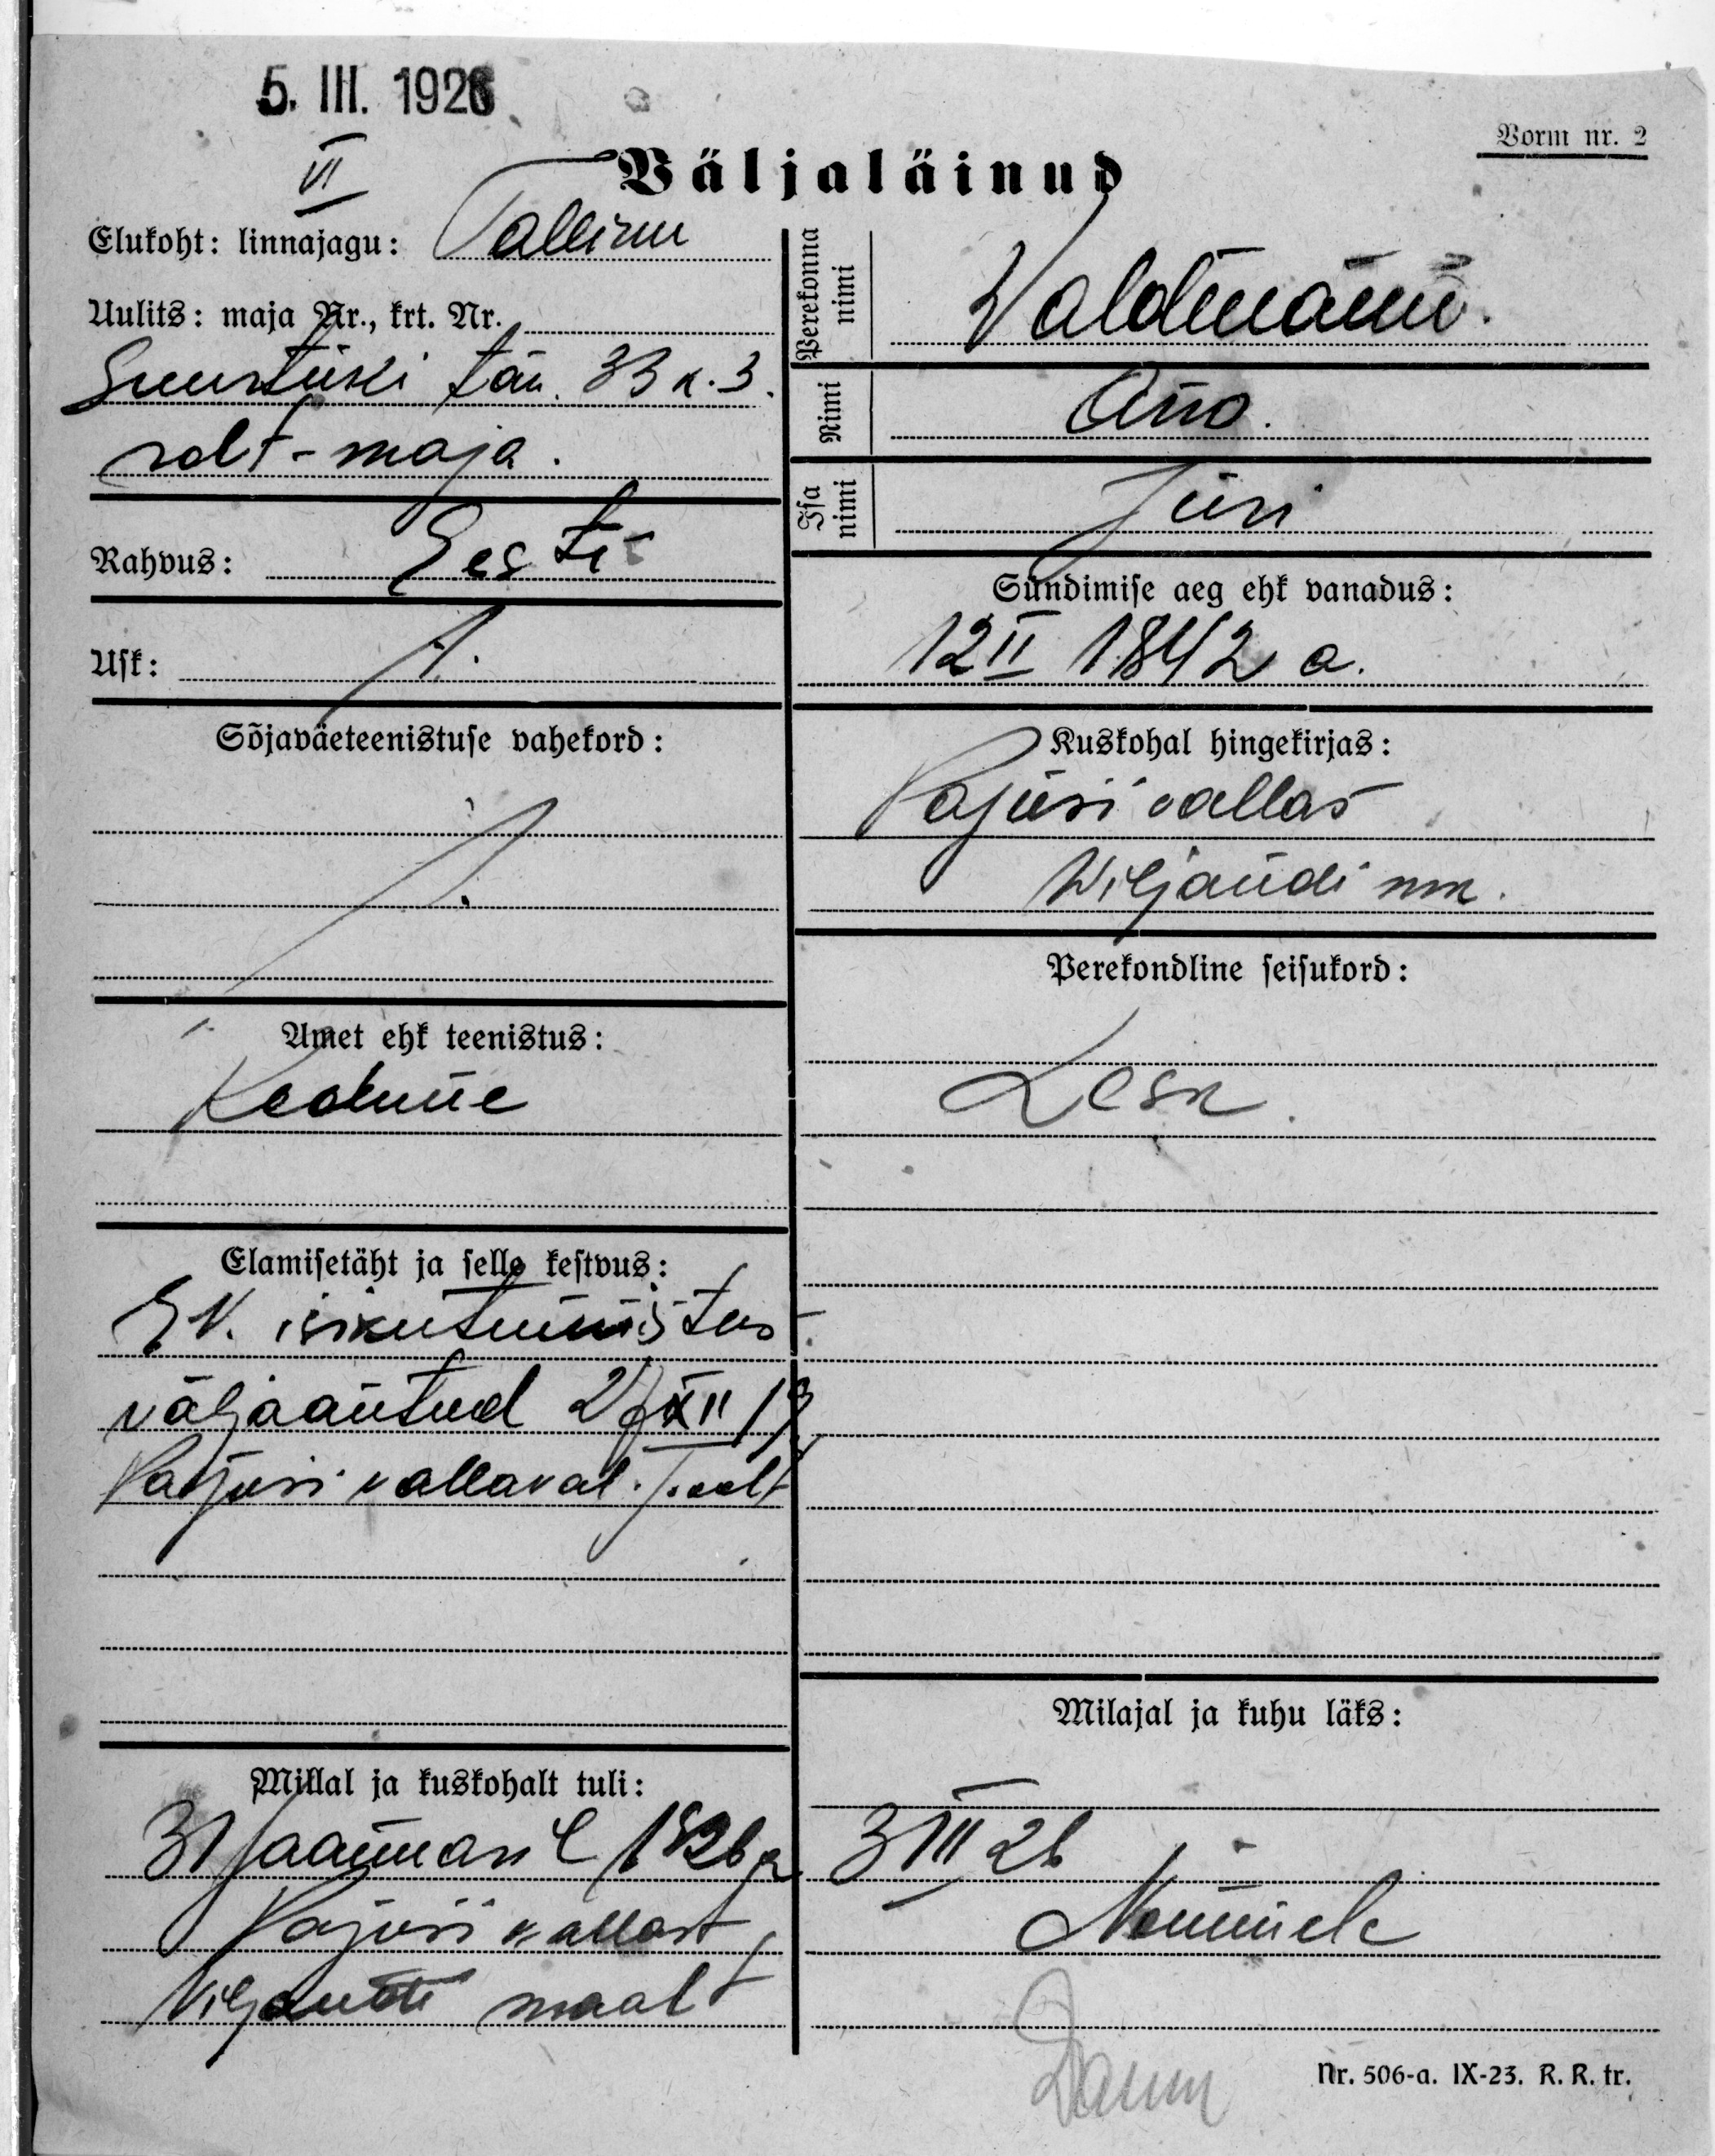 5. III. 1926
Vorm nr. 2
VI
Väljaläinud
Elukoht: linnajagu: Tallinn
Uulits: maja Nr., krt. Nr.
Suurtüki tän. 33 k. 3.
-maja.
Rahvus: Eesti
Usk:
Sõjaväeteenistuse vahekord:
Amet ehk teenistus:
Elamisetäht ja selle kestvus:
E V. isikutunnistus
väljaantud XII
Pajusi vallaval. poolt
Millal ja kuskohalt tuli:
31 Jaanuaril 1926 a
Pajusi vallast
Viljandi maalt
Perekonna nimi
Valdmann.
Nimi
Ano.
Isa nimi
Jüri
Sündimise aeg ehk vanadus:
12 II 1842 a.
Kuskohal hingekirjas:
Pajusi vallas
Wiljandi mk.
Perekondline seisukord:
Lesk.
Milajal ja kuhu läks:
3 III 26
Nõmmele
Nr. 506-a. IX-23. R. R. tr.